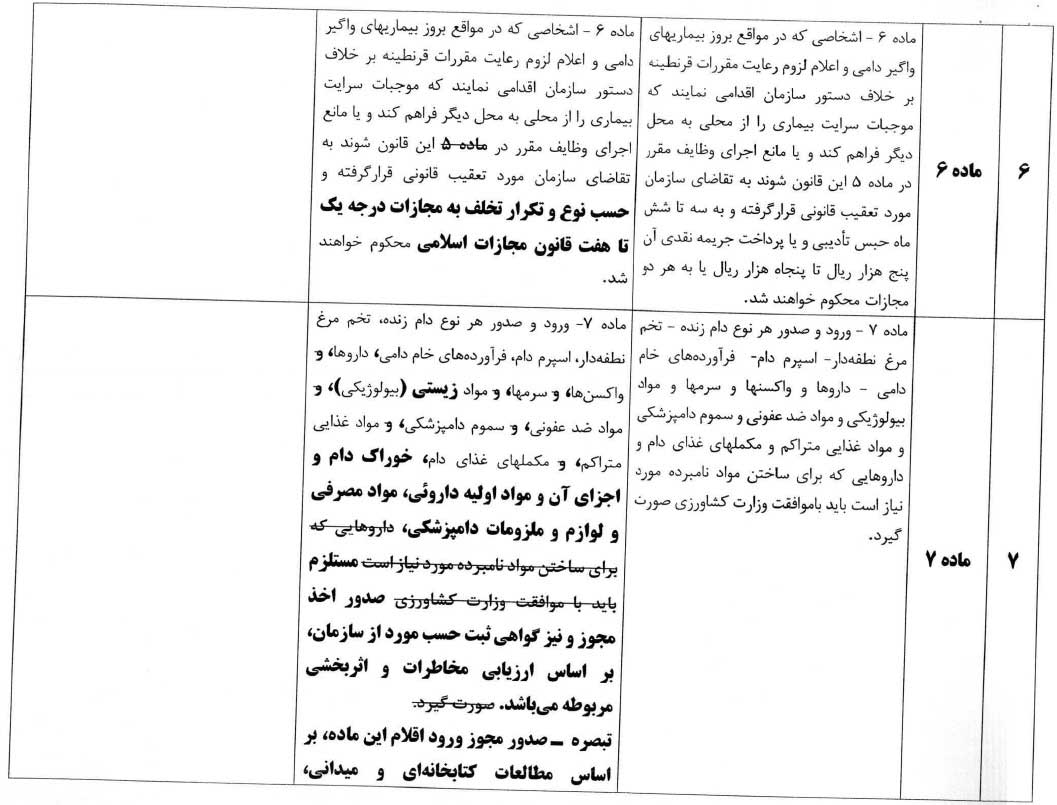 ۶
ماده ۶
ماده ۶ - اشخاصی که در مواقع بروز بیماریهای
واگیر دامی و اعلام لزوم رعایت مقررات قرنطینه
بر خلاف دستور سازمان اقدامی نمایند که
موجبات سرایت بیماری را از محلی به محل
دیگر فراهم کند و یا مانع اجرای وظایف مقرر
در ماده ۵ این قانون شوند به تقاضای سازمان
مورد تعقیب قانونی قرارگرفته و به سه تا شش
ماه حبس تأدیبی و یا پرداخت جریمه نقدی آن
پنج هزار ریال تا پنجاه هزار ریال یا به هر دو
مجازات محکوم خواهند شد.
ماده ۶ - اشخاصی که در مواقع بروز بیماریهای واگیر
دامی و اعلام لزوم رعایت مقررات قرنطینه بر خلاف
دستور سازمان اقدامی نمایند که موجبات سرایت
بیماری را از محلی به محل دیگر فراهم کند و یا مانع
اجرای وظایف مقرر در ماده ۵ این قانون شوند به
تقاضای سازمان مورد تعقیب قانونی قرارگرفته و
حسب نوع و تکرار تخلف به مجازات درجه یک
تا هفت قانون مجازات اسلامی محکوم خواهند
شد.
۷
ماده ۷
ماده ۷ - ورود و صدور هر نوع دام زنده - تخم
مرغ نطفه‌دار- اسپرم دام- فرآورده‌های خام
دامی - داروها و واکسنها و سرمها و مواد
بیولوژیکی و مواد ضد عفونی و سموم دامپزشکی
و مواد غذایی متراکم و مکملهای غذای دام و
داروهایی که برای ساختن مواد نامبرده مورد
نیاز است باید باموافقت وزارت کشاورزی صورت
گیرد.
ماده ۷- ورود و صدور هر نوع دام زنده، تخم مرغ
نطفه‌دار، اسپرم دام، فرآورده‌های خام دامی، داروها، و
واکسن‌ها، و سرمها، و مواد زیستی (بیولوژیکی)، و
مواد ضد عفونی، و سموم دامپزشکی، و مواد غذایی
متراکم، و مکملهای غذای دام، خوراک دام و
اجزای آن و مواد اولیه داروئی، مواد مصرفی
و لوازم و ملزومات دامپزشکی، داروهایی که
برای ساختن مواد نامبرده مورد نیاز است مستلزم
باید با موافقت وزارت کشاورزی صدور اخذ
مجوز و نیز گواهی ثبت حسب مورد از سازمان،
بر اساس ارزیابی مخاطرات و اثربخشی
مربوطه می‌باشد. صورت گیرد.
تبصره – صدور مجوز ورود اقلام این ماده، بر
اساس مطالعات کتابخانه‌ای و میدانی،